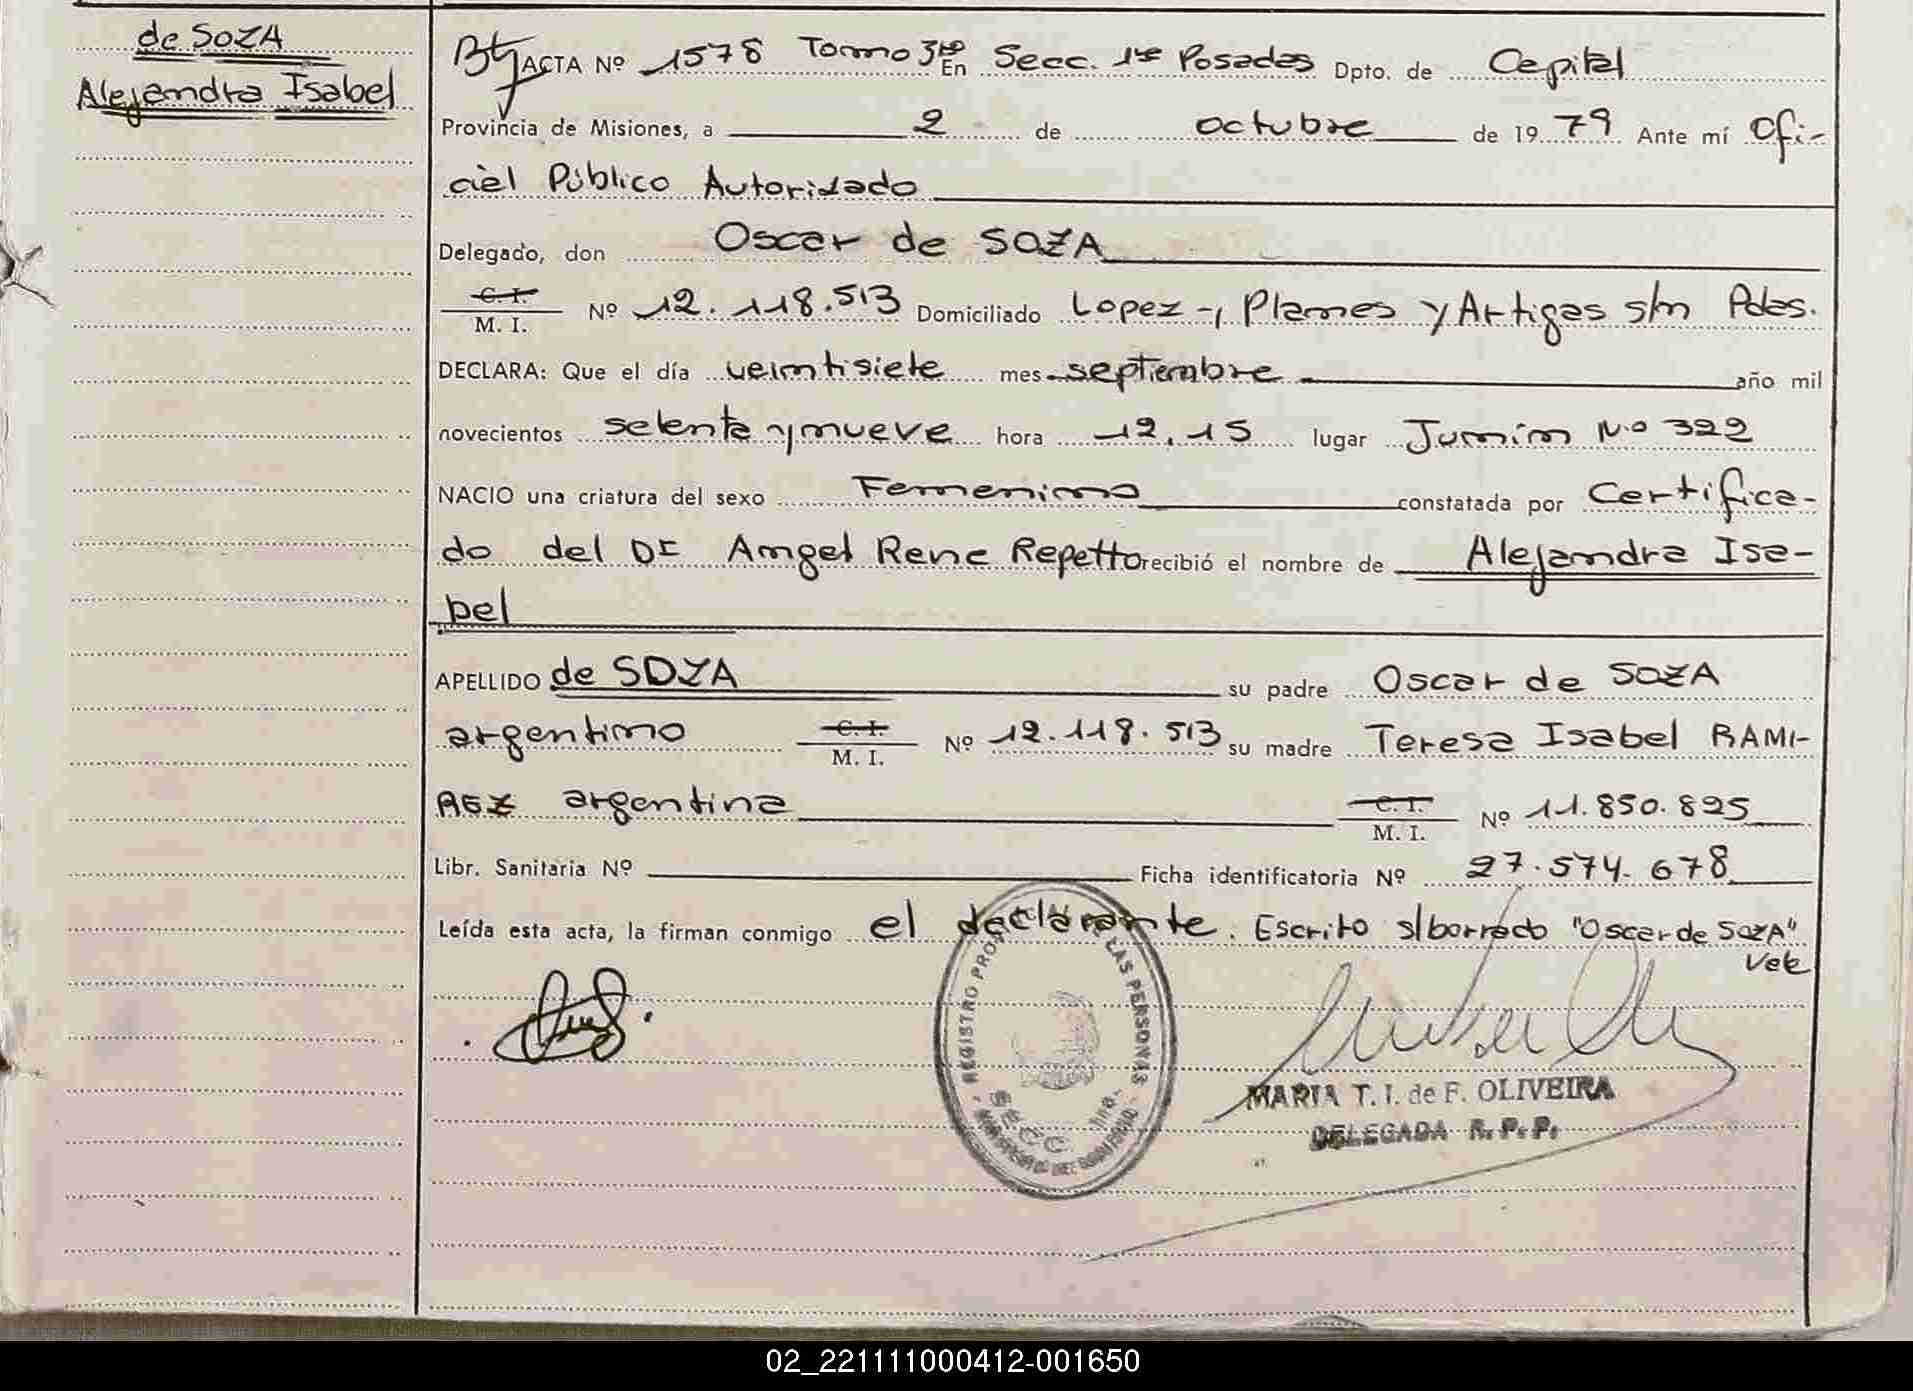 de SOZA
Alejandra Isabel
ACTA Nº 1578 Tomo 3ro En Secc. 1ra Posadas Dpto. de Capital
Provincia de Misiones, a 2 de octubre de 1979 Ante mí Ofi-
cial Público Autorizado
Delegado, don Oscar de SOZA
C. I.
M. I. Nº 12.118.513 Domiciliado Lopez y Planes y Artigas s/n Pdas.
DECLARA: Que el día veintisiete mes septiembre año mil
novecientos setenta y nueve hora 12,15 lugar Junín No 322
NACIO una criatura del sexo Femenino constatada por Certifica-
do del Dr Angel Rene Repetto recibió el nombre de Alejandra Isa-
bel
APELLIDO de SOZA su padre Oscar de SOZA
argentino C. I. M. I. Nº 12.118.513 su madre Teresa Isabel RAMI-
REZ argentina C. I. M. I. Nº 11.850.825
Libr. Sanitaria Nº Ficha identificatoria Nº 27.574.678
Leída esta acta, la firman conmigo el declarante. Escrito s/borrado "Oscar de SOZA"
Vale
REGISTRO PROV. DE LAS PERSONAS
SECC. 1ra.
MARIA T. I. de F. OLIVEIRA
DELEGADA R. P. P.
02_221111000412-001650